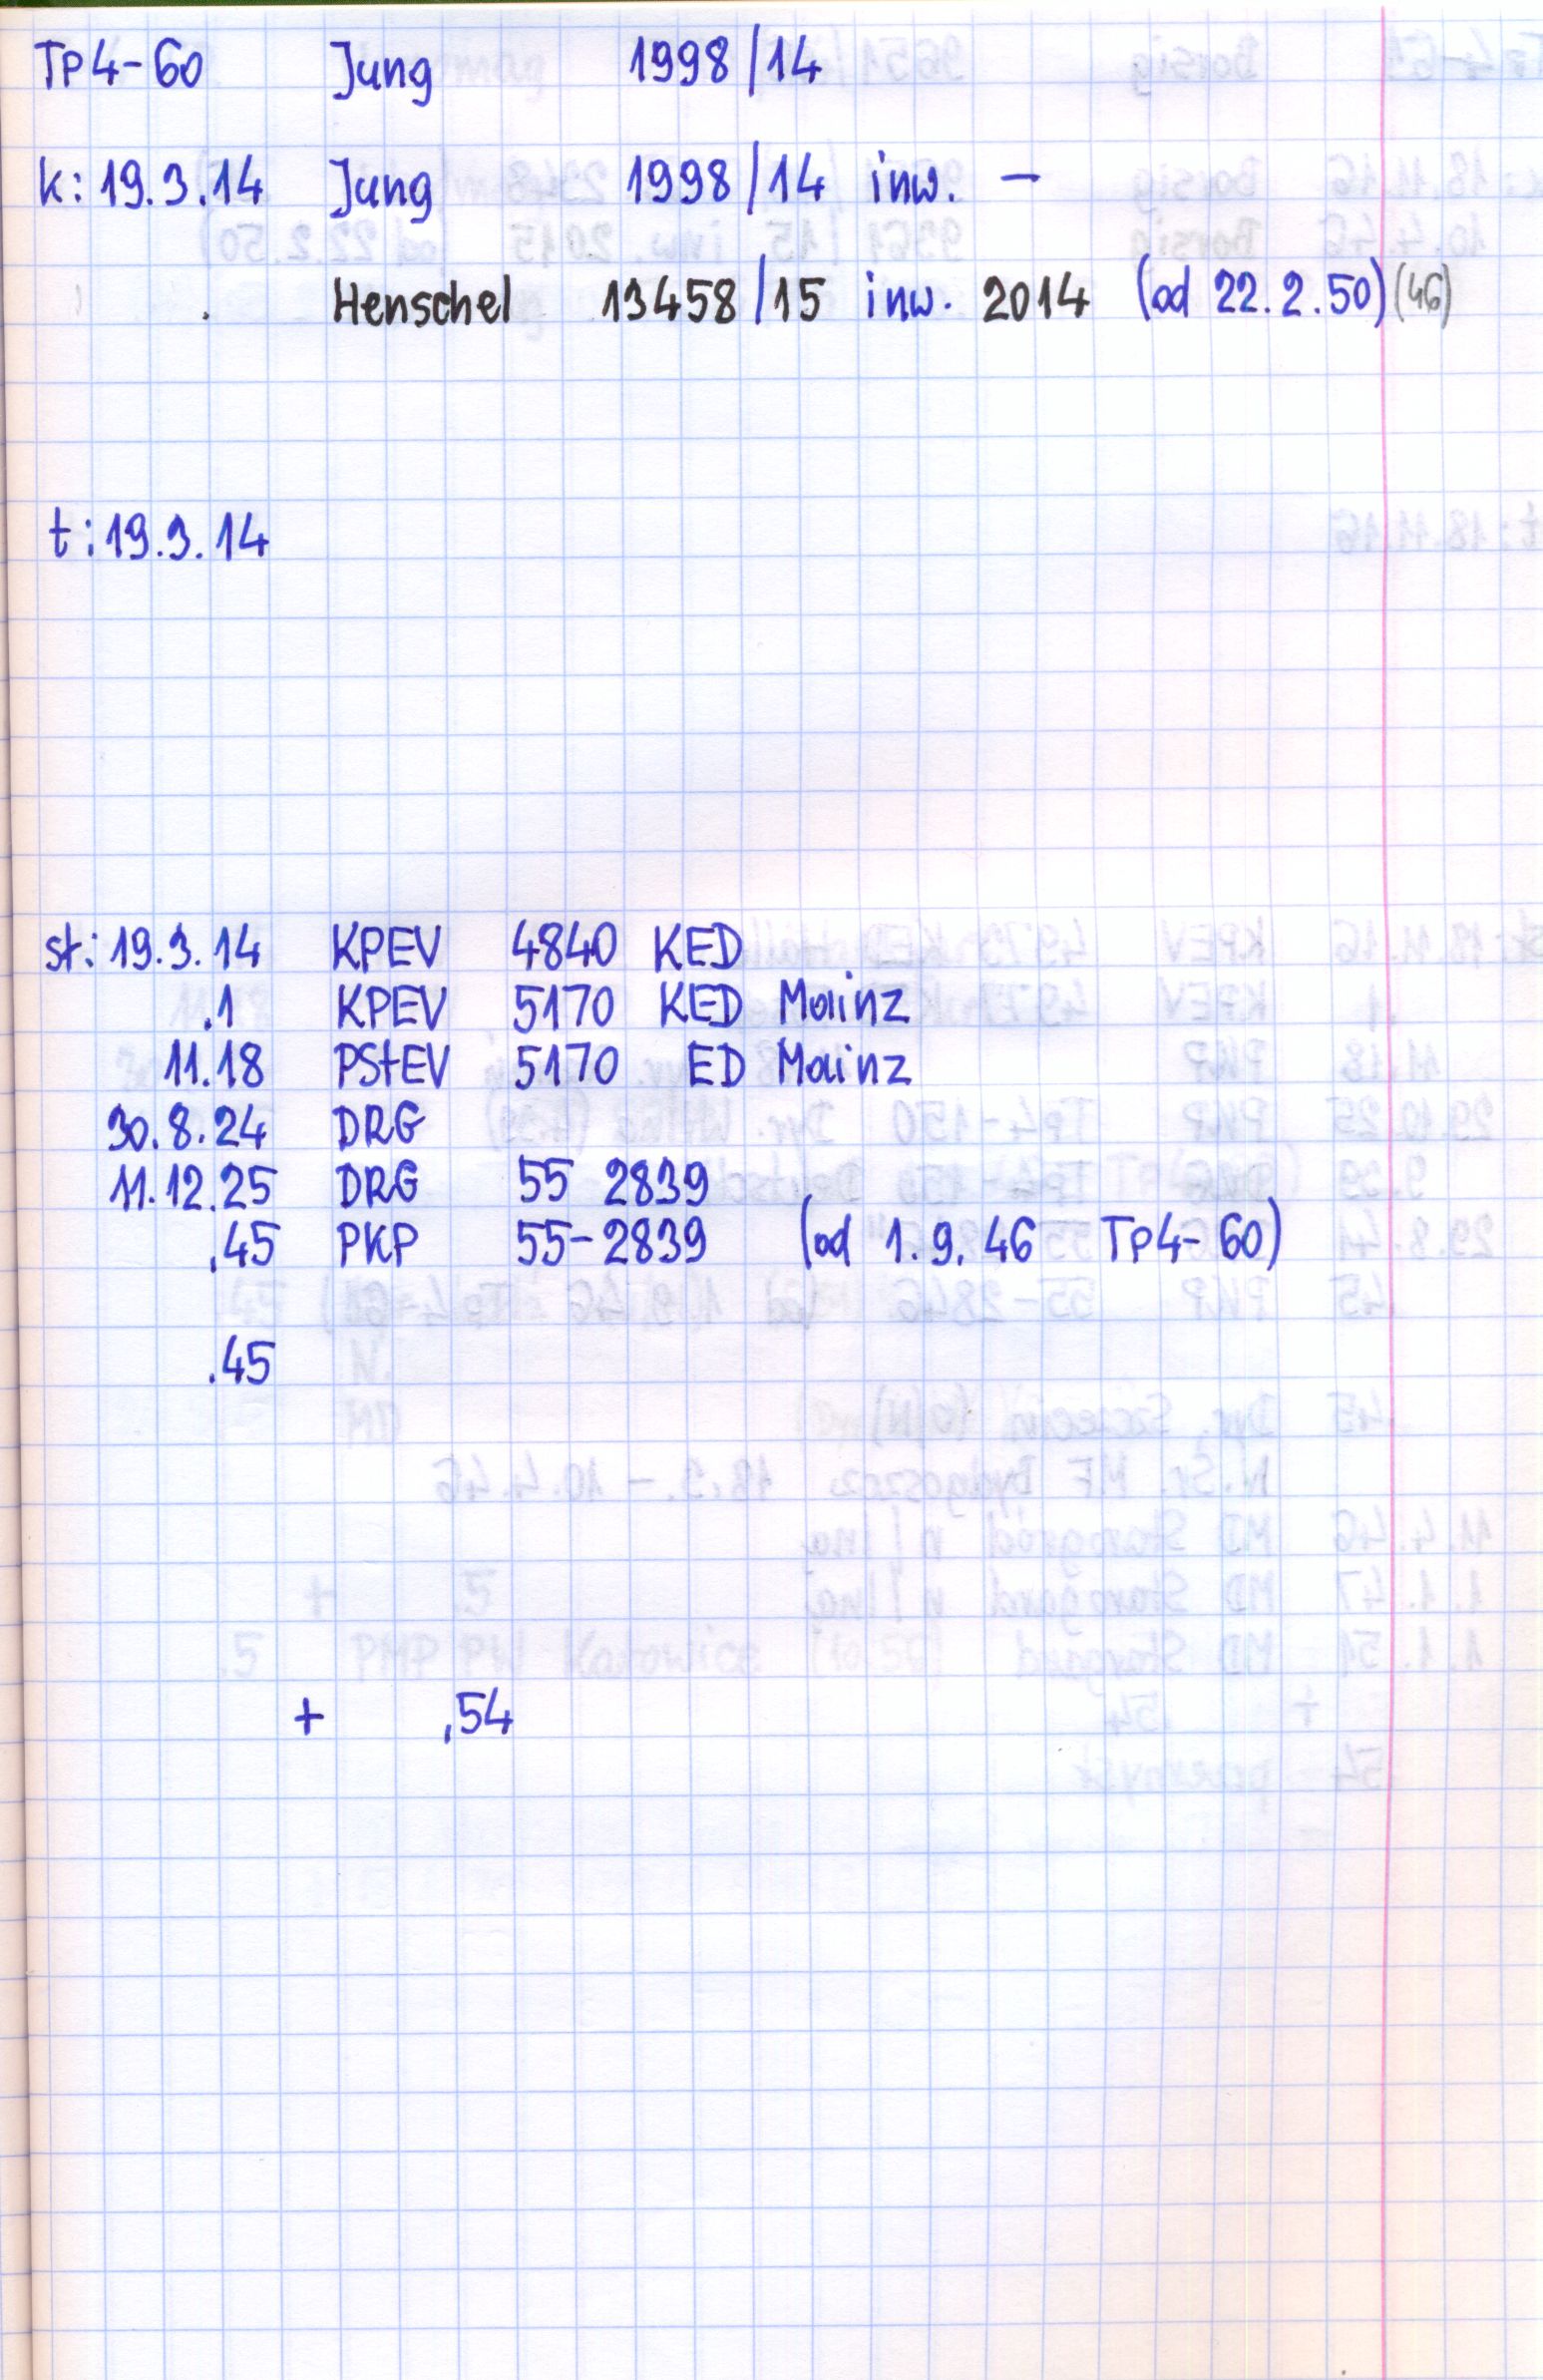 Tp4-60 Jung 1998/14
k: 19.3.14 Jung 1998/14 inw. -
. Henschel 13458/15 inw. 2014 (od 22.2.50) (46)
t: 19.3.14
st: 19.3.14 KPEV 4840 KED
.1 KPEV 5170 KED Mainz
11.18 PStEV 5170 ED Mainz
30.8.24 DRG
11.12.25 DRG 55 2839
.45 PKP 55-2839 (od 1.9.46 Tp4-60)
.45
+ .54